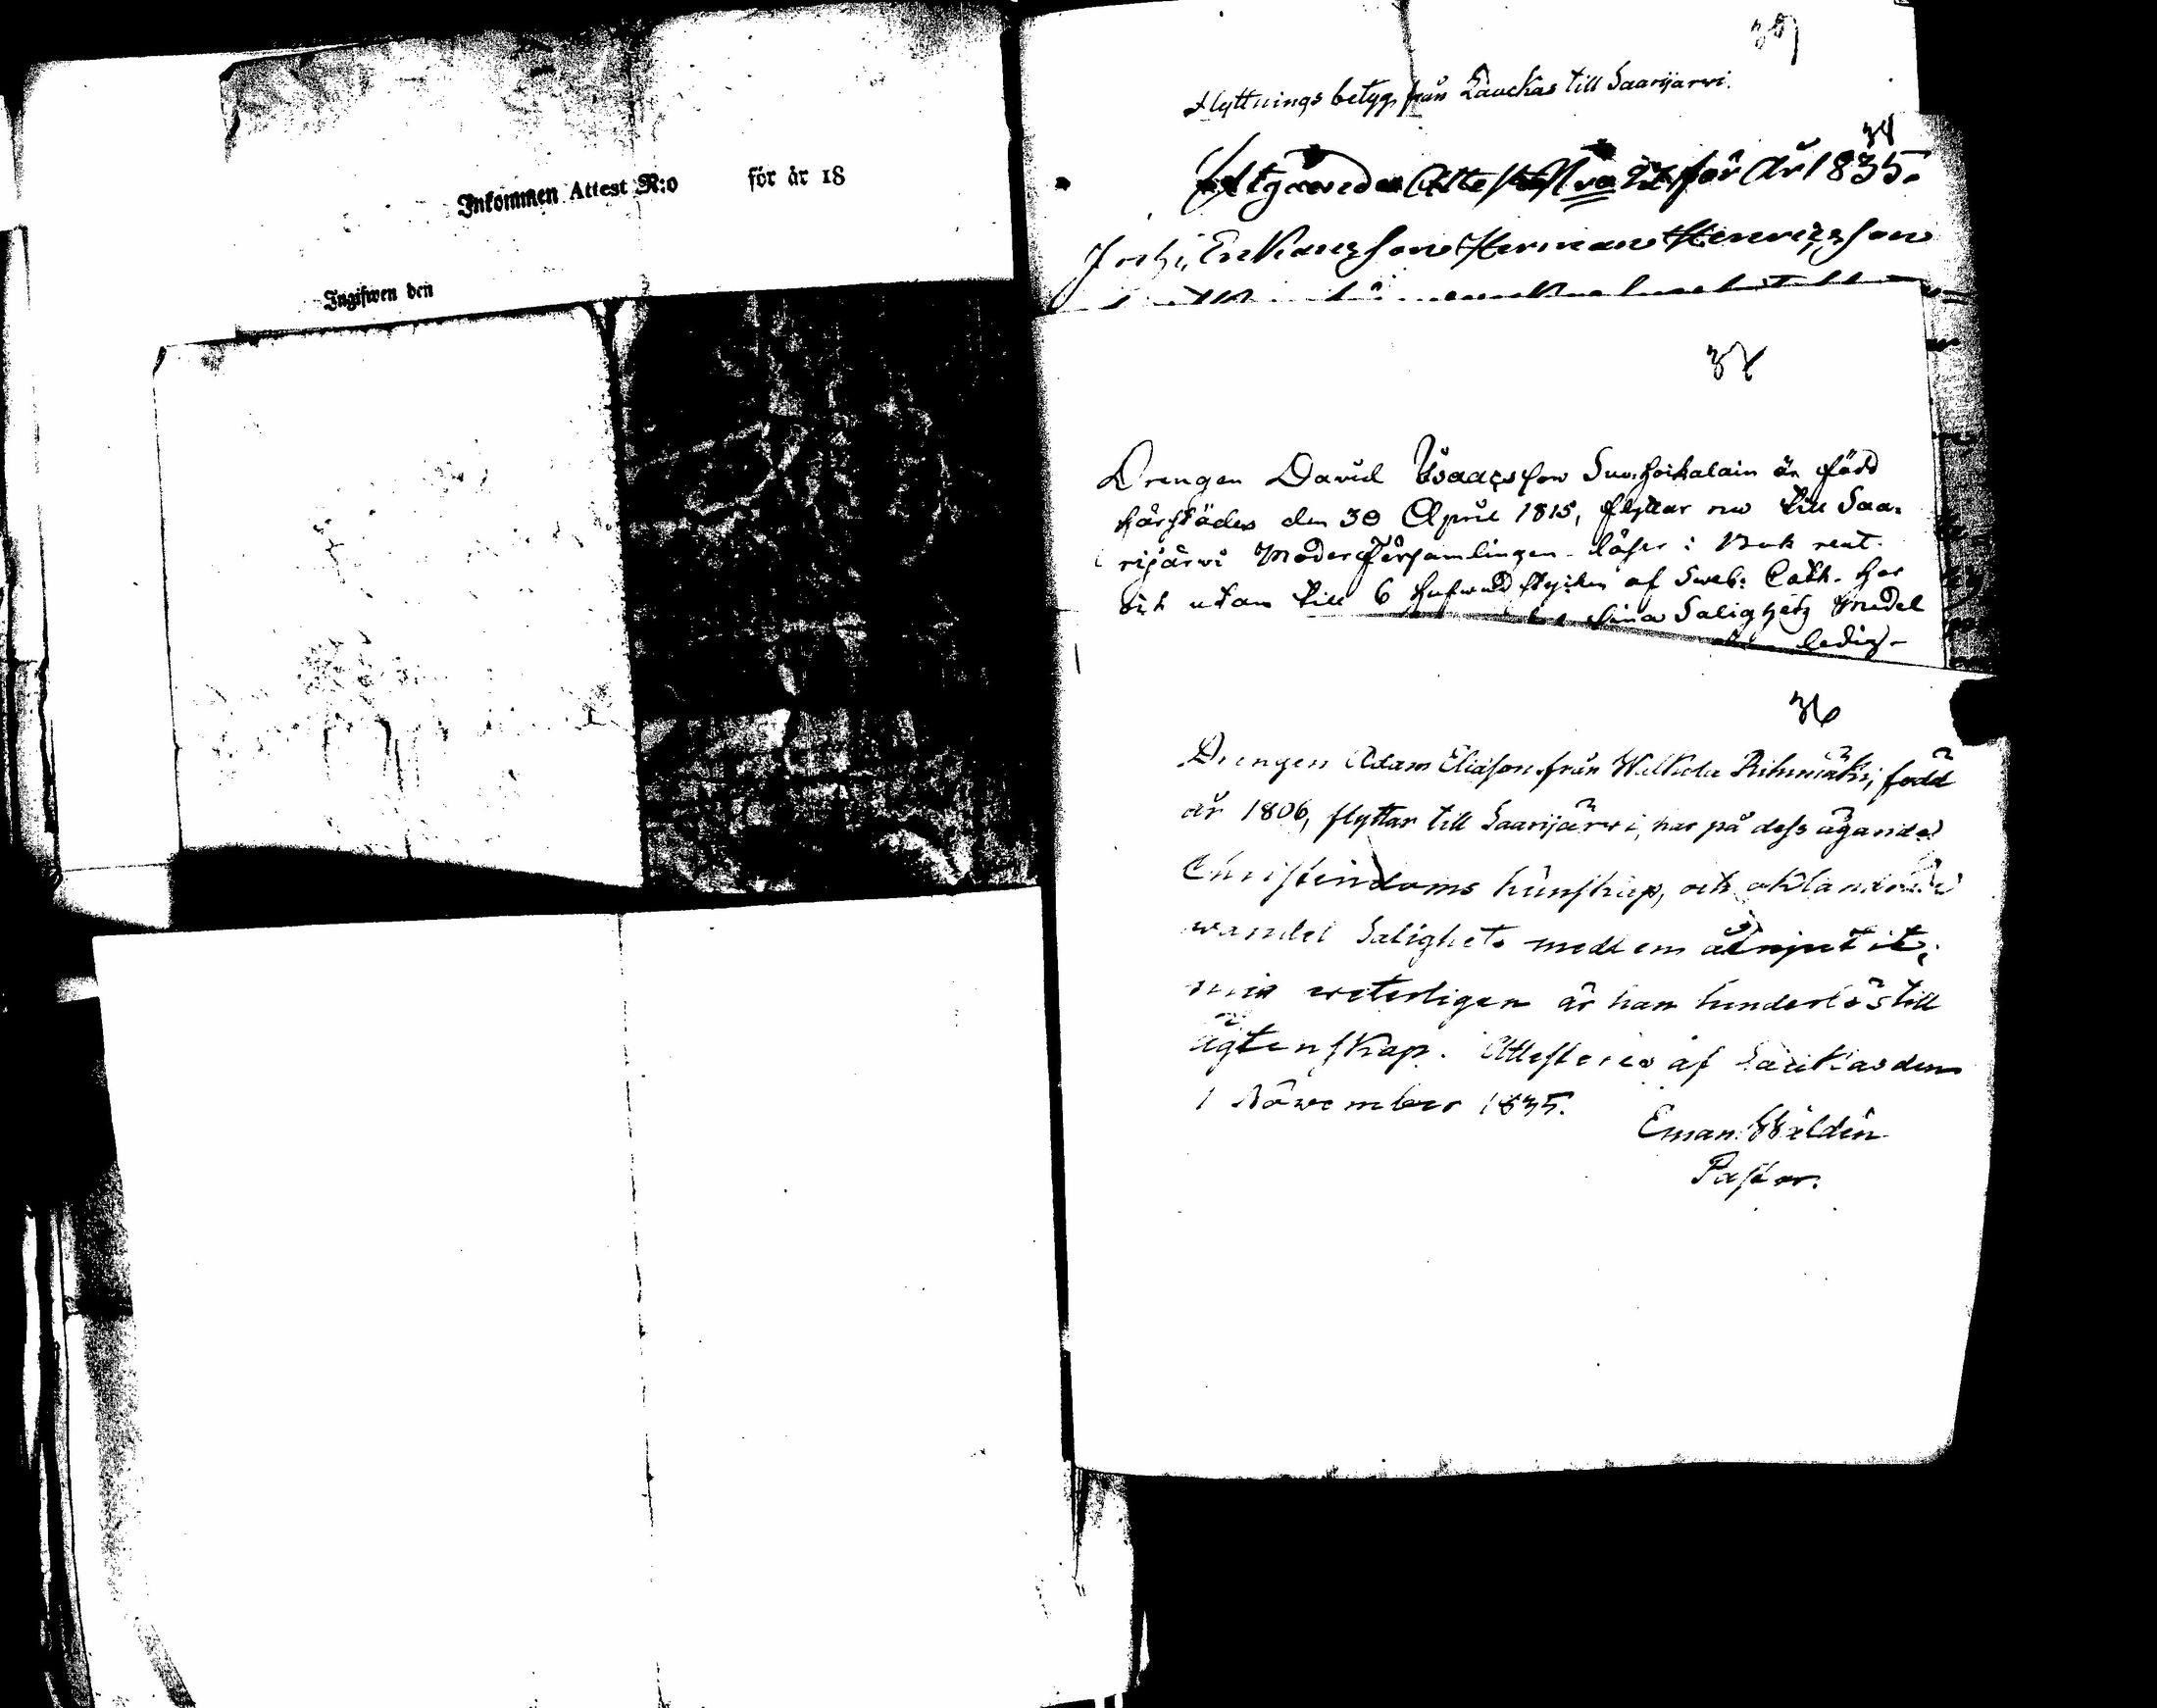 Inkommen Attest N:o för år 18
Ingifwen den
Flyttnings betyg från Laukas till Saarijärwi.
38
Utgående Attest för År 1835.
Enkans son Herman Henricsson
37
Drengen David Isaacsson är född
härstädes den 30 April 1815, flyttar nu till Saa-
rijärwi Moderförsamlingen - läser i Bok rent
och utan till 6 hufwud stycken af Sweb: Cath. har
sina Salighetz Medel
ledig-
36
Drengen Adam Eliasson från Wilkola Rihimäki, född
år 1806, flyttar till Saarijärwi, har på dess ägande
Christendoms kunskap, och oklandrade
wandel Salighets medlem åtnjutit,
min weterligen är han hinderlös till
ägtenskap. Attesteras af Laukas den
1 November 1835.
Eman: Wildén
Pastor.